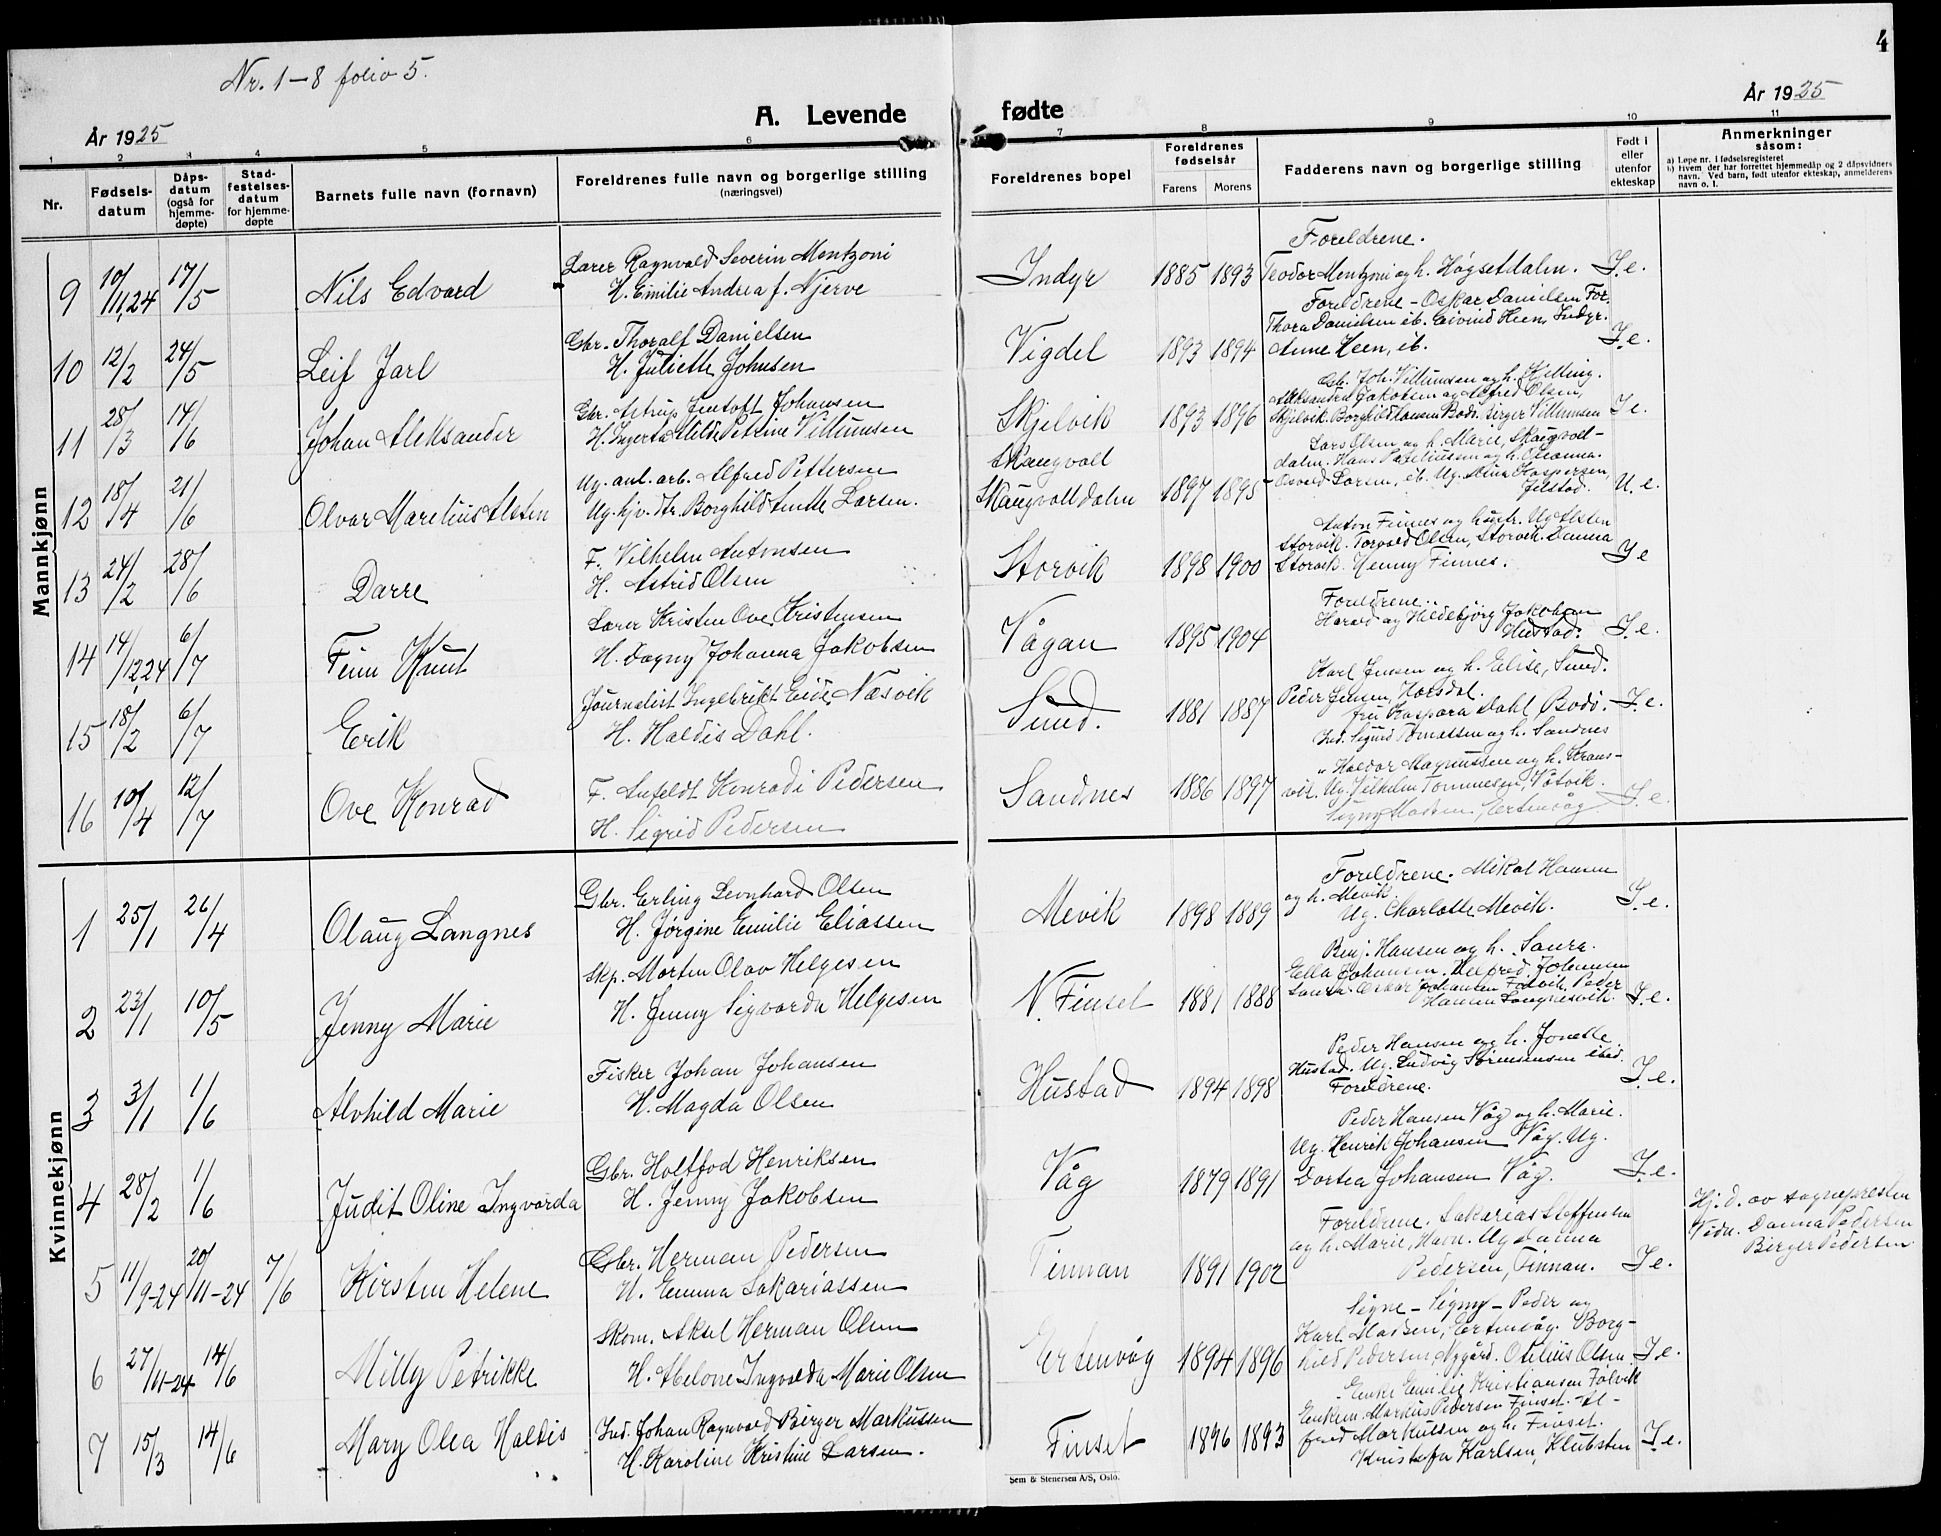 Nr. 1-8 folio 5.
4
År 1925
A. Levende fødte
År 1925
1 2 3 4 5 6 7 8 9 10 11
Nr.
Fødsels-datum
Dåps-datum (også for hjemme-døpte)
Stad-festelses-datum for hjemme-døpte
Barnets fulle navn (fornavn)
Foreldrenes fulle navn og borgerlige stilling
(næringsvei)
Foreldrenes bopel
Foreldrenes fødselsår
Farens Morens
Fadderens navn og borgerlige stilling
Født i eller utenfor ekteskap
Anmerkninger
såsom:
a) Løpe nr. i fødselsregisteret
b) Hvem der har forrettet hjemmedåp og 2 dåpsvidners
navn. Ved barn, født utenfor ekteskap, anmelderens
navn o. l.
Mannkjønn
9 10/11,24 17/5 Nils Edvard
Lærer Ragnvald Severin Mentzoni
H. Emilie Andrea f. Njerve
Indyr 1885 1893
Foreldrene.
Teodor Mentzoni og h. Høgsetdalen. I.e.
10 12/2 24/5 Leif Jarl
Gbr. Thoralf Danielsen
H. Juliette Johnsen
Vigdel 1893 1894
Foreldrene - Oskar Danielsen For.
Thora Danielsen ib. Eivind Heen, Indyr.
Anne Heen, ib. I.e.
11 28/3 14/6 Johan Aleksander
Gbr. Astrup Jentoft Johansen
H. Ingerta Milde Petrine Villumsen
Skjelvik 1893 1896
Gb. Joh. Villumsen og h. Kjelling.
Aleksandra Jakobsen og Alfred Olsen,
Skjelvik. Borghild Hansen Bodø. Birger Villumsen I.e.
12 18/4 21/6 Olvar Marelius Alsten
Ug. anl. arb. Alfred Pettersen
Ug. hjv. dtr. Borghild Anette Larsen.
Skaugvoll
Skaugvolldalen 1897 1895
Lars Olsen og h. Marie, Skaugvoll-
dalen. Hans Pareliussen og h. Oleanna.
Osvald Larsen, ib. Ug. Alma Kaspersen,
Jelstad. U.e.
13 24/2 28/6 Darre
F. Vilhelm Antonsen
H. Astrid Olsen
Storvik 1898 1900
Anton Finnes og hustr. Ug Alsten
Storvik. Torvald Olsen, Storvik. Danna
Storvik. Henny Finnes. I.e
14 14/12,24 6/7 Finn Knut
Lærer Kristen Ove Kristensen
H. Dagny Johanna Jakobsen
Vågan 1895 1904
Foreldrene.
Harald og Hildebjørg Jakobsen
Hustad. I.e.
15 18/2 6/7 Erik
Journalist Ingebrikt Eide, Næsvik
H. Haldis Dahl.
Sund. 1881 1887
Karl Jensen og h. Elise, Sund.
Peder Jensen, Horsdal.
fru Kaspara Dahl, Bodø. I.e.
16 10/4 12/7 Ove Konrad
F. Anfeldt Konradi Pedersen
H. Sigrid Pedersen
Sandnes 1886 1897
Ind. Sigurd Tomassen og h. Sandnes
" Haldor Magnussen og h. Strans-
vik. Ug. Vilhelm Tommesen, Våtvik.
Signy Madsen, Ertenvåg. I.e.
Kvinnekjønn
1 25/1 26/4 Olaug Langnes
Gbr. Erling Leonhard Olsen
H. Jørgine Emilie Eliassen
Mevik 1898 1889
Foreldrene. Mikal Hansen
og h. Mevik.
Ug. Charlotte Mevik. I.e.
2 23/1 10/5 Jenny Marie
Skp. Morten Olav Helgesen
H. Jenny Sigvarda Helgesen
N. Finset 1881 1888
Benj. Hansen og h. Saura.
Ella Johansen. Helfred Johansen
Saura. Oskar Johansen Følvik. Peder
Hansen Langnesvik. I.e.
3 3/1 1/6 Alvhild Marie
Fisker Johan Johansen
H. Magda Olsen
Hustad 1894 1898
Peder Hansen og h. Jonette
Hustad. Ug. Ludvig Sørensen ibid.
Foreldrene. I.e.
4 28/2 1/6 Judit Oline Ingvarda
Gbr. Holtfod Henriksen
H. Jenny Jakobsen
Våg 1879 1891
Peder Hansen Våg og h. Marie.
Ug. Henrik Johansen Våg. Ug.
Dortea Johansen Våg. I.e.
5 11/9-24 20/11-24 7/6 Kirsten Helene
Gbr. Herman Pedersen
H. Emma Sakariassen
Finnan 1891 1902
Foreldrene. Sakarias Steffensen
og h. Marie, Havn. Ug Danna
Pedersen, Finnan. I.e.
Hj.d. av sognepresten
Vidn. Danna Pedersen
Birger Pedersen.
6 27/11-24 14/6 Milly Petrikke
Skom. Aksel Herman Olsen
H. Abelone Ingvalda Marie Olsen
Ertenvåg 1894 1896
Signe - Signy - Peder og
Karl Madsen, Ertenvåg. Borg-
hild Pedersen, Nygård. Otilius Olsen. I.e.
7 15/3 14/6 Mary Olea Haldis
Ind. Johan Ragnvald Birger Markussen
H. Karoline Kristine Larsen.
Finset 1896 1893
Enke Emilie Kristiansen Følvik
Enkem. Markus Pedersen Finset. Al-
fred Markussen og h. Finset.
Kristofer Karlsen, Klubsten I.e.
Sem & Stenersen A/S, Oslo.